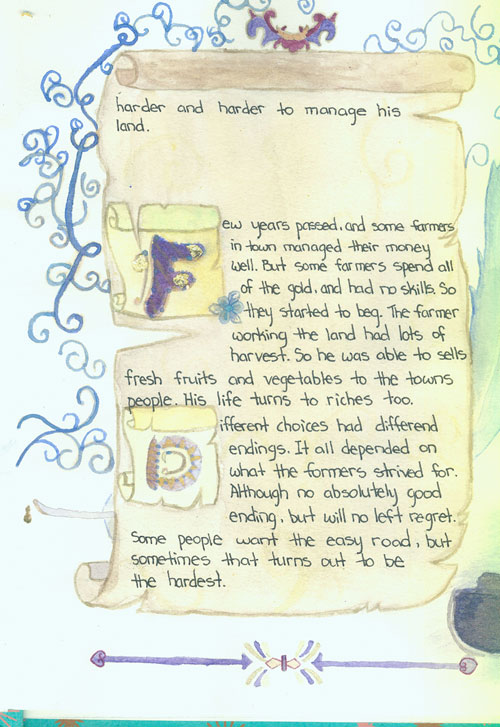 harder and harder to manage his
land.
Few years passed, and some farmers
in town managed their money
well. But some farmers spend all
of the gold, and had no skills. So
they started to beg. The farmer
working the land had lots of
harvest. So he was able to sells
fresh fruits and vegetables to the towns
people. His life turns to riches too.
Different choices had differend
endings. It all depended on
what the formers strived for.
Although no absolutely good
ending, but will no left regret.
Some people want the easy road, but
sometimes that turns out to be
the hardest.